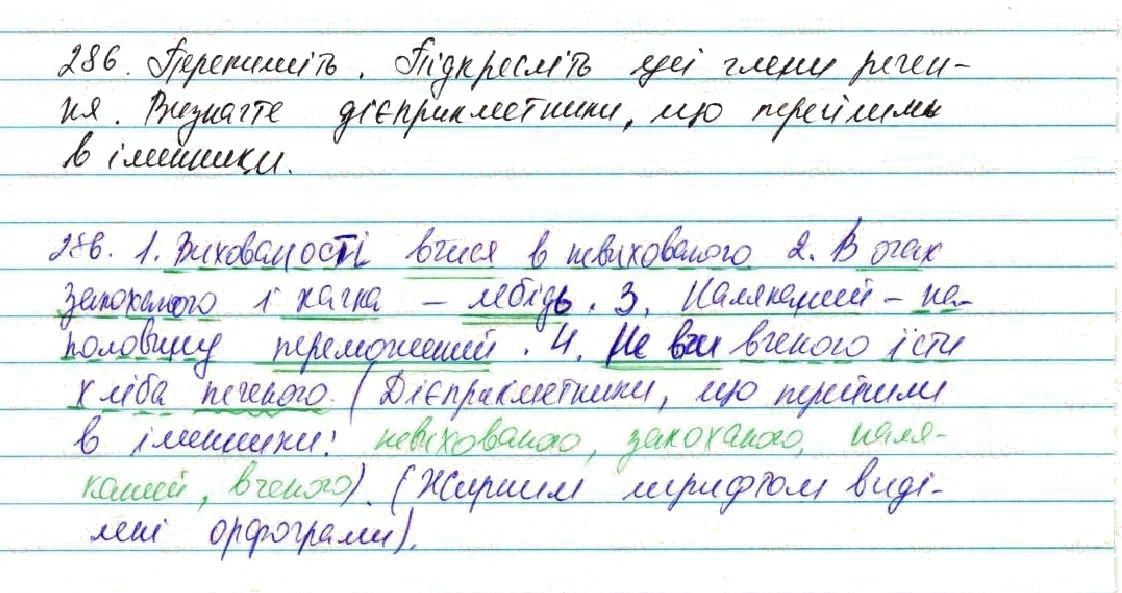 286. Перепишіть. Підкресліть усі члени речен-
ня. Визначте дієприкметники, що перейшли
в іменники.
286. 1. Вихованості вчися в невихованого 2. В очах
закоханого і качка – лебідь. 3. Наляканий – на-
половину переможений. 4. Не вчи вченого їсти
хліба печеного. (Дієприкметники, що перейшли
в іменники: невихованого, закоханого, наля-
каний, вченого). (Жирним шрифтом виді-
лені орфограми).